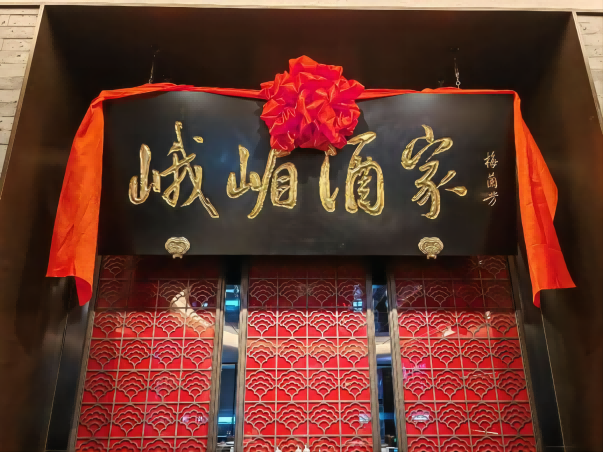 峨嵋酒家
梅蘭芳